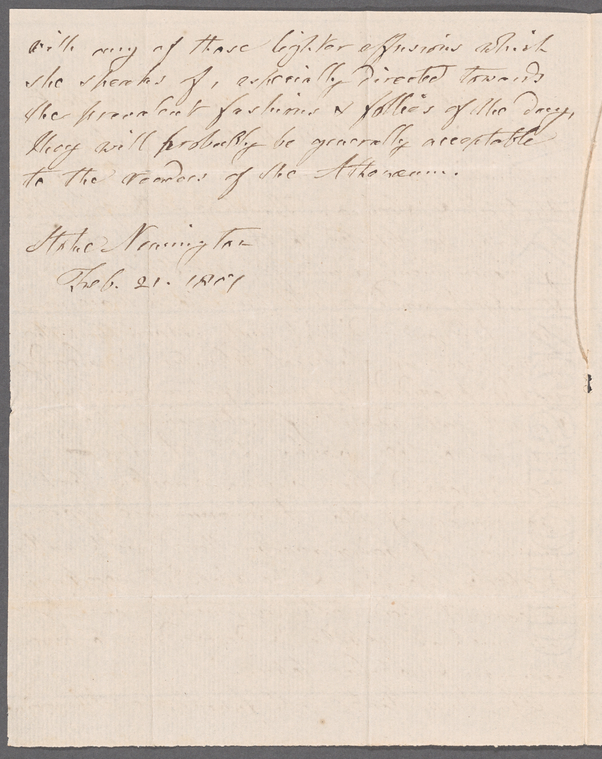 with any of those lighter effusions which
she speaks of, especially directed towards
the prevalent fashions & follies of the day,
they will probably be generally acceptable
to the readers of the Athenæum.
Stoke Newington
Feb. 21. 1807